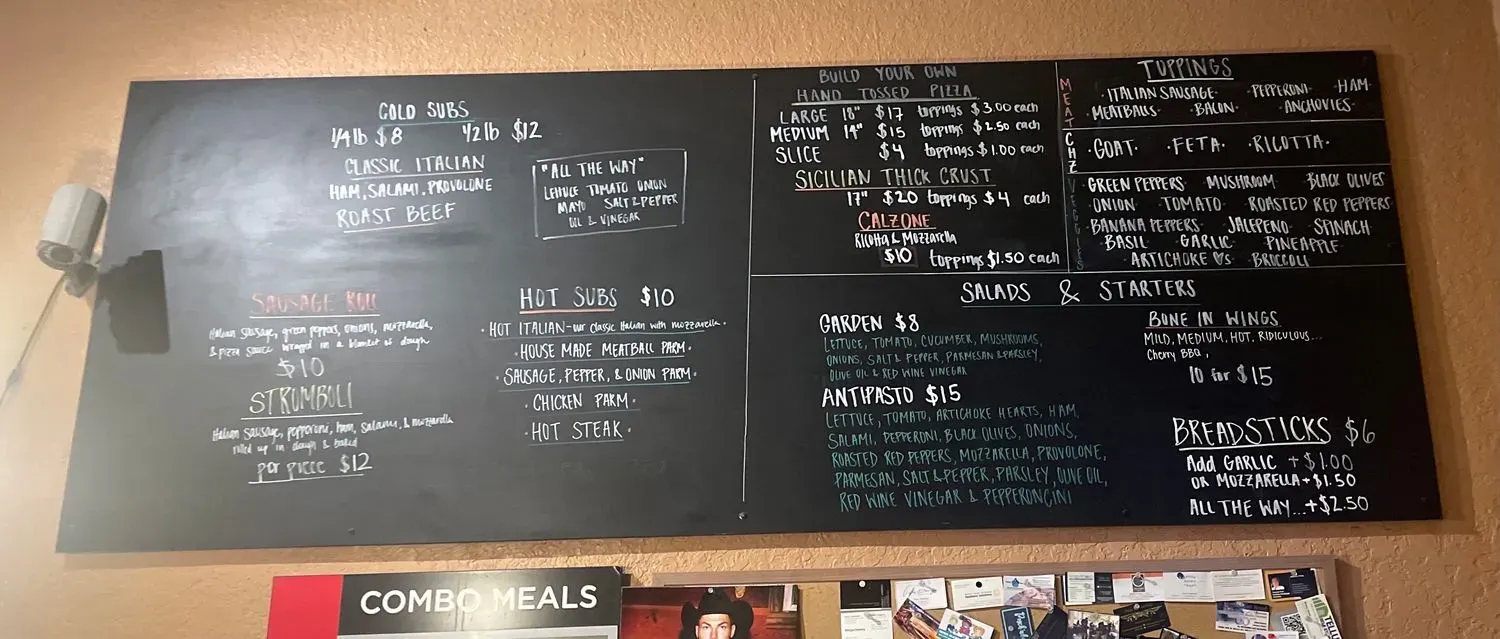 COLD SUBS
1/4 lb $8 1/2 lb $12
CLASSIC ITALIAN
HAM, SALAMI, PROVOLONE
ROAST BEEF
"ALL THE WAY"
LETTUCE TOMATO ONION
MAYO SALT & PEPPER
OIL & VINEGAR
SAUSAGE ROLL
Italian Sausage, green peppers, onions, mozzarella,
& pizza sauce wrapped in a blanket of dough
$10
STROMBOLI
Italian Sausage, pepperoni, ham, salami, & mozzarella
rolled up in dough & baked
per piece $12
HOT SUBS $10
· HOT ITALIAN - our classic Italian with mozzarella ·
· HOUSE MADE MEATBALL PARM ·
· SAUSAGE, PEPPER, & ONION PARM ·
· CHICKEN PARM ·
· HOT STEAK ·
BUILD YOUR OWN
HAND TOSSED PIZZA
LARGE 18" $17 toppings $3.00 each
MEDIUM 14" $15 toppings $2.50 each
SLICE $4 toppings $1.00 each
SICILIAN THICK CRUST
17" $20 toppings $4 each
CALZONE
Ricotta & Mozzarella
$10 toppings $1.50 each
TOPPINGS
MEAT
· ITALIAN SAUSAGE · · PEPPERONI · HAM ·
· MEATBALLS · BACON · · ANCHOVIES ·
CHZ
· GOAT · · FETA · · RICOTTA ·
VEGGIES
· GREEN PEPPERS · MUSHROOM · BLACK OLIVES
· ONION · TOMATO · ROASTED RED PEPPERS
· BANANA PEPPERS · JALEPENO · SPINACH
· BASIL · GARLIC · PINEAPPLE
· ARTICHOKE ♡s · BROCCOLI
SALADS & STARTERS
GARDEN $8
LETTUCE, TOMATO, CUCUMBER, MUSHROOMS,
ONIONS, SALT & PEPPER, PARMESAN & PARSLEY,
OLIVE OIL & RED WINE VINEGAR
ANTIPASTO $15
LETTUCE, TOMATO, ARTICHOKE HEARTS, HAM,
SALAMI, PEPPERONI, BLACK OLIVES, ONIONS,
ROASTED RED PEPPERS, MOZZARELLA, PROVOLONE,
PARMESAN, SALT & PEPPER, PARSLEY, OLIVE OIL,
RED WINE VINEGAR & PEPPERONCINI
BONE IN WINGS
MILD, MEDIUM, HOT, RIDICULOUS...
Cherry BBQ,
10 for $15
BREADSTICKS $6
Add GARLIC + $1.00
OR MOZZARELLA + $1.50
ALL THE WAY... + $2.50
COMBO MEALS